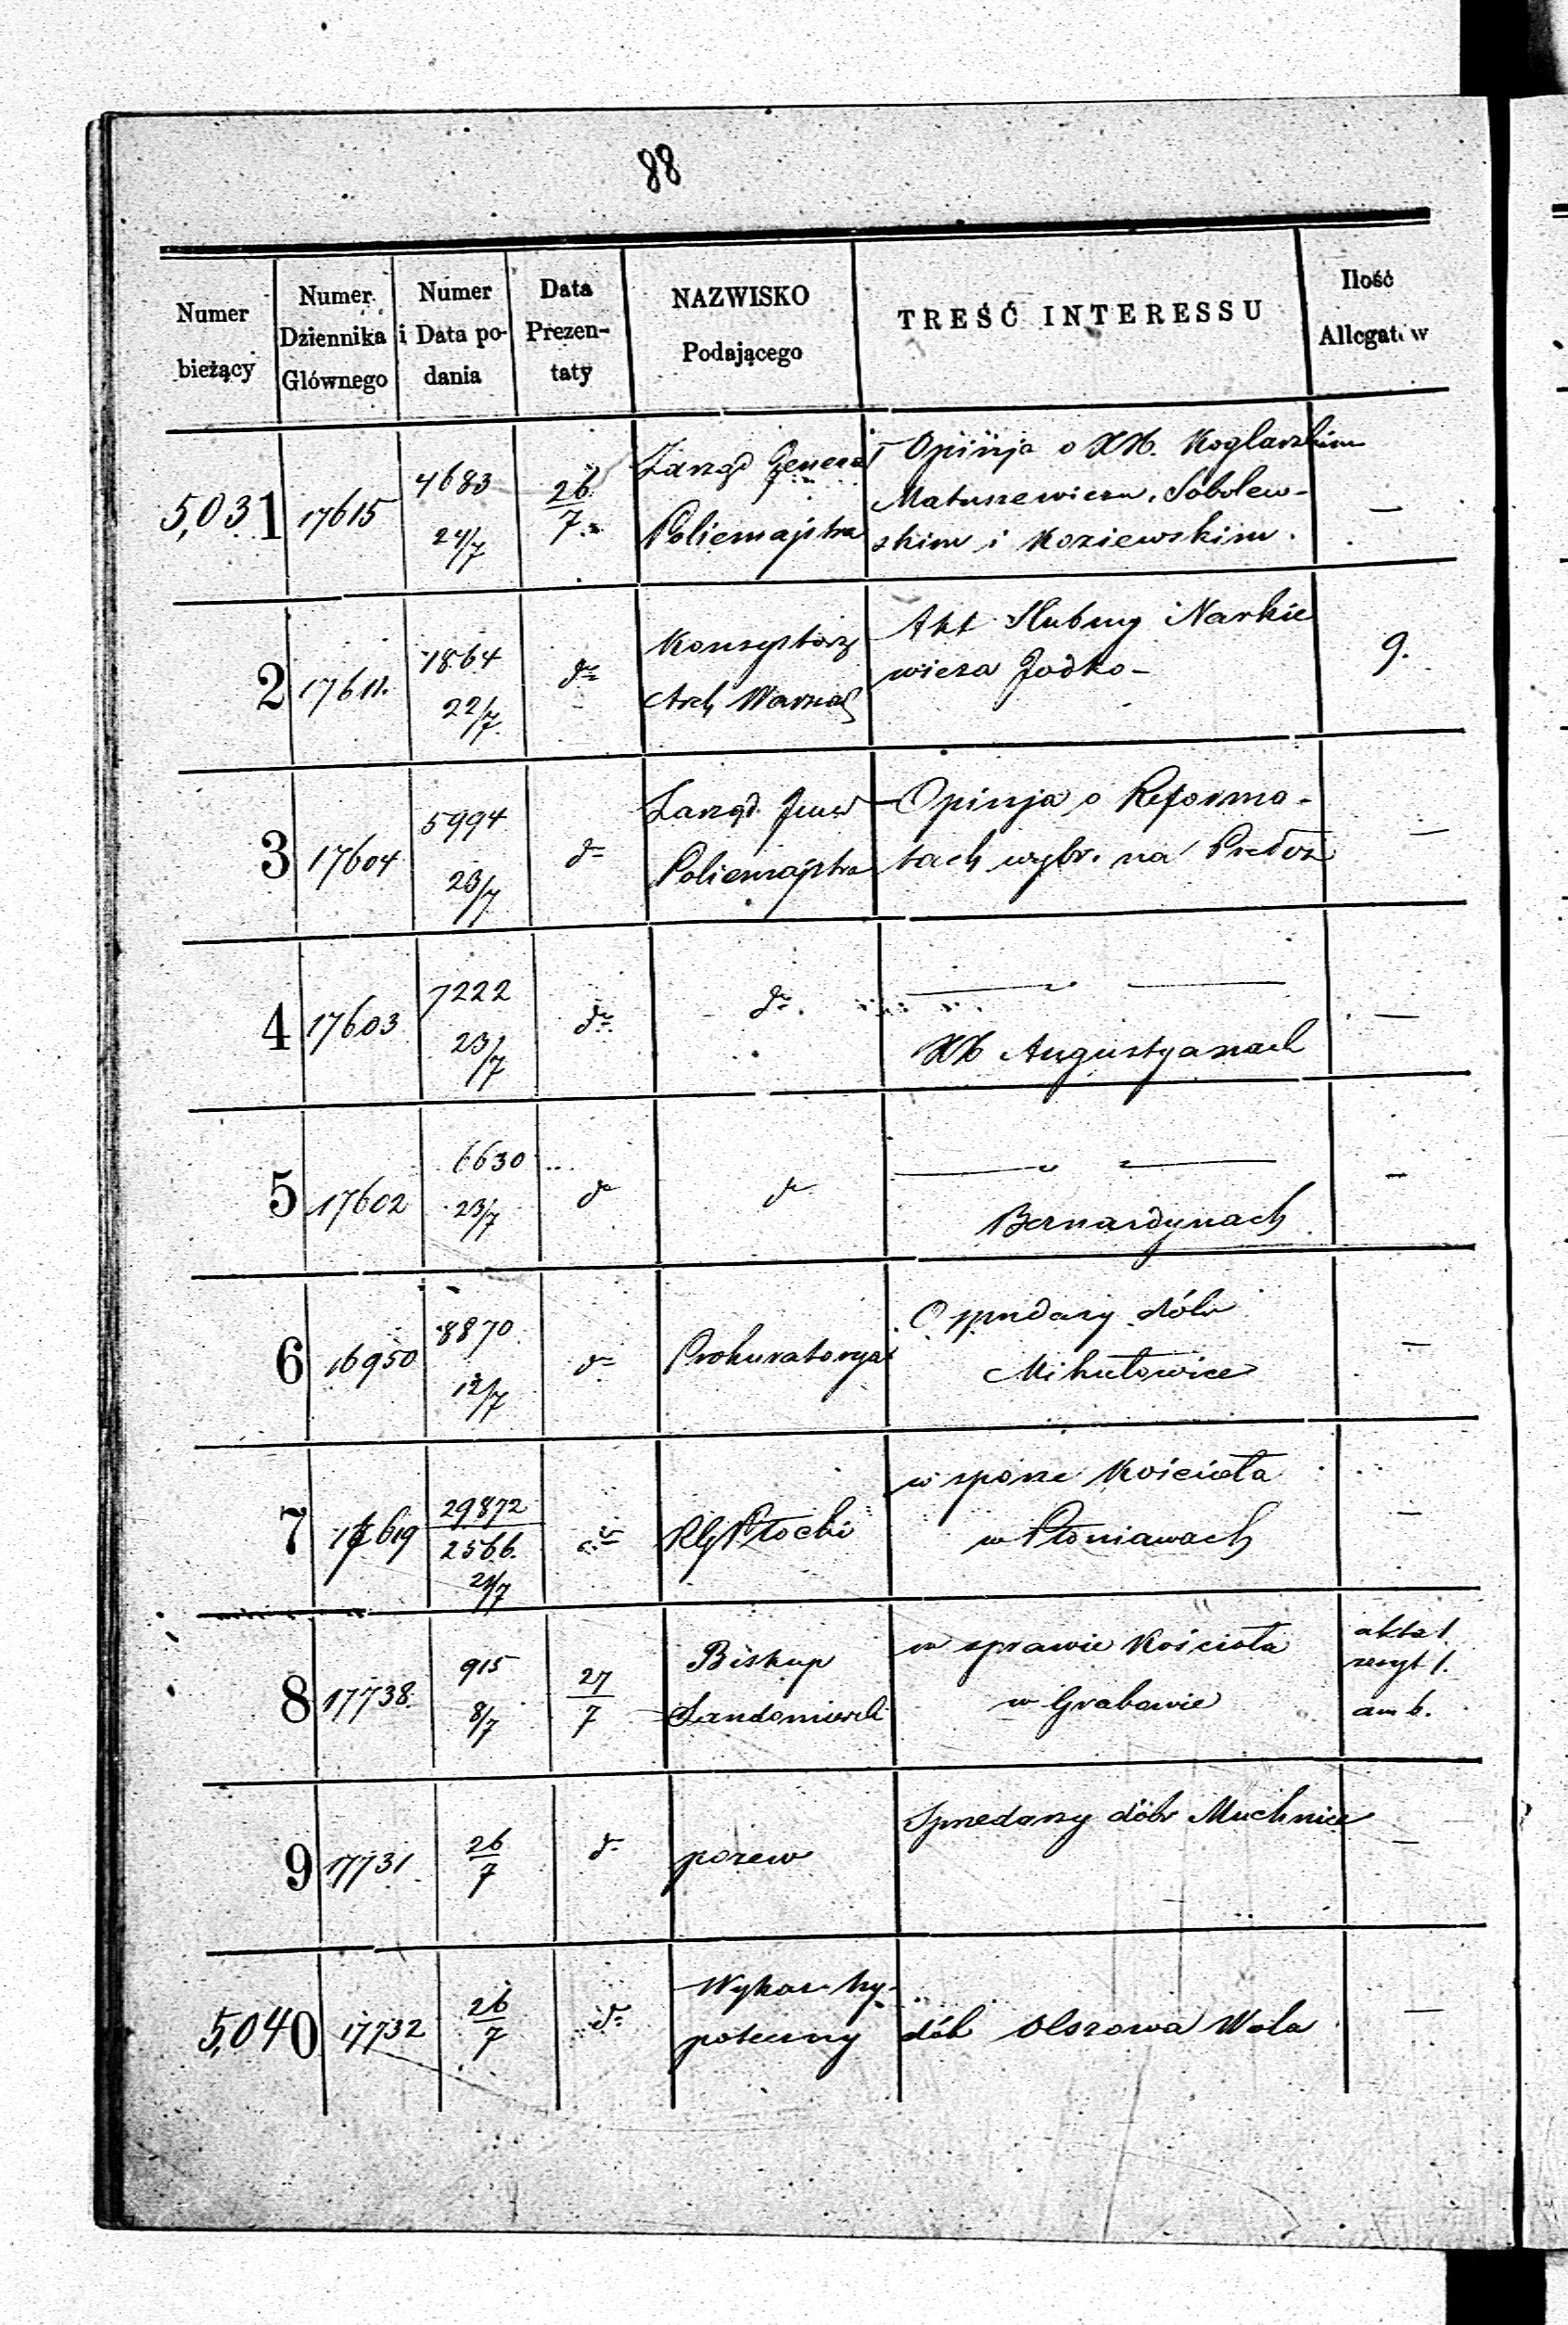 88
Numer bieżący | Numer Dziennika Głównego | Numer i Data podania | Data Prezentaty | NAZWISKO Podającego | TREŚĆ INTERESSU | Ilość Allegatów
5,031 | 17615 | 4683 24/7 | 26/7 | Zarząd General Policmajstra | Opinja o XX. Koglarskim
Matuszewiczu, Sobolew-
skim i Koziewskim. | —
2 | 17611. | 1864 22/7 | do | Konsystorz Arch Warszaw | Akt Slubny Narkie
wicza Jodko - | 9.
3 | 17604 | 5994 23/7 | do | Zarząd Policmajstra | Opinja o Reforma-
tach wybr. na | —
4 | 17603 | 7222 23/7 | do | do. | — " —
XX Augustyanach | —
5 | 17602 | 6630 23/7 | do | do | — " —
Bernardynach | —
6 | 16950 | 8870 12/7 | do | Prokuratorya | O sprzedaży dóbr
Mikułowice | —
7 | 17619 | 29872 2566. 21/7 | do | RG Płocki | w sporze Kościoła
w Płoniawach | —
8 | 17738. | 915 8/7 | 27/7 | Biskup Sandomierski | w sprawie Kościoła
w Grabowie | akta 1
zeszyt 1.
an 6.
9 | 17731 | 26/7 | do | pozew | Sprzedaży dóbr Muchnice | —
5,040 | 17732 | 26/7 | do | Wykaz hy-
poteczny | dób Olszowa Wola | —